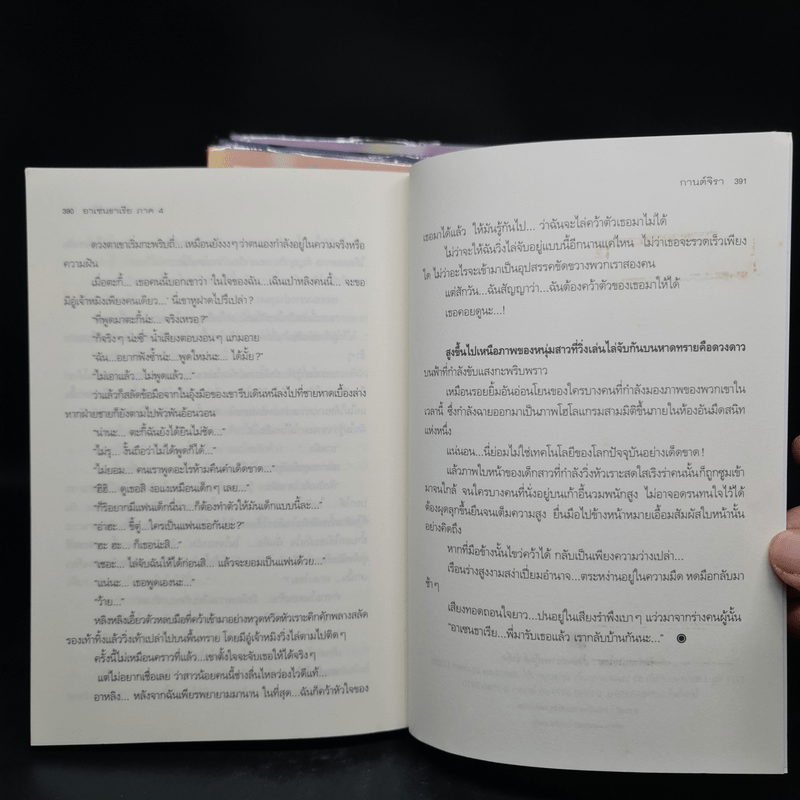 390 อาเซนธาเรีย ภาค 4
ดวงตาเขาเริ่มกะพริบถี่... เหมือนยังงงๆ ว่าตนเองกำลังอยู่ในความจริงหรือ
ความฝัน
เมื่อตะกี้... เธอคนนี้บอกเขาว่า 'ในใจของฉัน...เฉินเปาหลิงคนนี้... จะขอ
มีอู๋เจ้าหมิงเพียงคนเดียว...' นี่เขาหูฝาดไปรึเปล่า?
"ที่พูดมาตะกี้น่ะ... จริงเหรอ?"
"ก็จริงๆ น่ะซี่" น้ำเสียงตอบงอนๆ แกมอาย
"ฉัน...อยากฟังซ้ำน่ะ...พูดใหม่นะ... ได้มั้ย?"
"ไม่เอาแล้ว...ไม่พูดแล้ว..."
ว่าแล้วก็สลัดข้อมือจากในอุ้งมือของเขารีบเดินหนีลงไปที่ชายหาดเบื้องล่าง
หากฝ่ายชายก็ยังตามไปพัวพันอ้อนวอน
"น่านะ... ตะกี้ฉันยังได้ยินไม่ชัด..."
"ไม่รู้... งั้นถือว่าไม่ได้พูดก็ได้..."
"ไม่ยอม... คนเราพูดอะไรห้ามคืนคำเด็ดขาด..."
"ฮิฮิ... ดูเธอสิ งอแงเหมือนเด็กๆ เลย..."
"ก็ริอยากมีแฟนเด็กนี่นา...ก็ต้องทำตัวให้มันเด็กแบบนี้ละ..."
"อ๋าฮะ... ขี้ตู่... ใครเป็นแฟนเธอกันยะ?"
"ฮะ ฮะ... ก็เธอน่ะสิ..."
"เชอะ... ไล่จับฉันให้ได้ก่อนสิ... แล้วจะยอมเป็นแฟนด้วย..."
"แน่นะ... เธอพูดเองนะ..."
"ว้าย..."
หลิงหลิงเอี้ยวตัวหลบมือที่คว้าเข้ามาอย่างหวุดหวิดหัวเราะคิกคักพลางสลัด
รองเท้าทิ้งแล้ววิ่งเท้าเปล่าไปบนพื้นทราย โดยมีอู๋เจ้าหมิงวิ่งไล่ตามไปติดๆ
ครั้งนี้ไม่เหมือนคราวที่แล้ว...เขาตั้งใจจะจับเธอให้ได้จริงๆ
แต่ไม่อยากเชื่อเลย ว่าสาวน้อยคนนี้ช่างลื่นไหลว่องไวดีแท้...
อาหลิง... หลังจากฉันเพียรพยายามมานาน ในที่สุด...ฉันก็คว้าหัวใจของ
กานต์จิรา 391
เธอมาได้แล้ว ให้มันรู้กันไป... ว่าฉันจะไล่คว้าตัวเธอมาไม่ได้
ไม่ว่าจะให้ฉันวิ่งไล่จับอยู่แบบนี้อีกนานแค่ไหน ไม่ว่าเธอจะรวดเร็วเพียง
ใด ไม่ว่าอะไรจะเข้ามาเป็นอุปสรรคขัดขวางพวกเราสองคน
แต่สักวัน...ฉันสัญญาว่า...ฉันต้องคว้าตัวของเธอมาให้ได้
เธอคอยดูนะ...!
สูงขึ้นไปเหนือภาพของหนุ่มสาวที่วิ่งเล่นไล่จับกันบนหาดทรายคือดวงดาว
บนฟ้าที่กำลังขับแสงกะพริบพราว
เหมือนรอยยิ้มอันอ่อนโยนของใครบางคนที่กำลังมองภาพของพวกเขาใน
เวลานี้ ซึ่งกำลังฉายออกมาเป็นภาพโฮโลแกรมสามมิติขึ้นภายในห้องอันมืดสนิท
แห่งหนึ่ง
แน่นอน...นี่ย่อมไม่ใช่เทคโนโลยีของโลกปัจจุบันอย่างเด็ดขาด!
แล้วภาพใบหน้าของเด็กสาวที่กำลังวิ่งหัวเราะสดใสเริงร่าคนนั้นก็ถูกซูมเข้า
มาจนใกล้ จนใครบางคนที่นั่งอยู่บนเก้าอี้นวมพนักสูง ไม่อาจอดรนทนใจไว้ได้
ต้องผุดลุกขึ้นยืนจนเต็มความสูง ยื่นมือไปข้างหน้าหมายเอื้อมสัมผัสใบหน้านั้น
อย่างคิดถึง
หากที่มือข้างนั้นไขว่คว้าได้ กลับเป็นเพียงความว่างเปล่า...
เรือนร่างสูงงามสง่าเปี่ยมอำนาจ...ตระหง่านอยู่ในความมืด หดมือกลับมา
ช้าๆ
เสียงทอดถอนใจยาว...ปนอยู่ในเสียงรำพึงเบาๆ แว่วมาจากร่างคนผู้นั้น
"อาเซนธาเรีย...พี่มารับเธอแล้ว เรากลับบ้านกันนะ..."